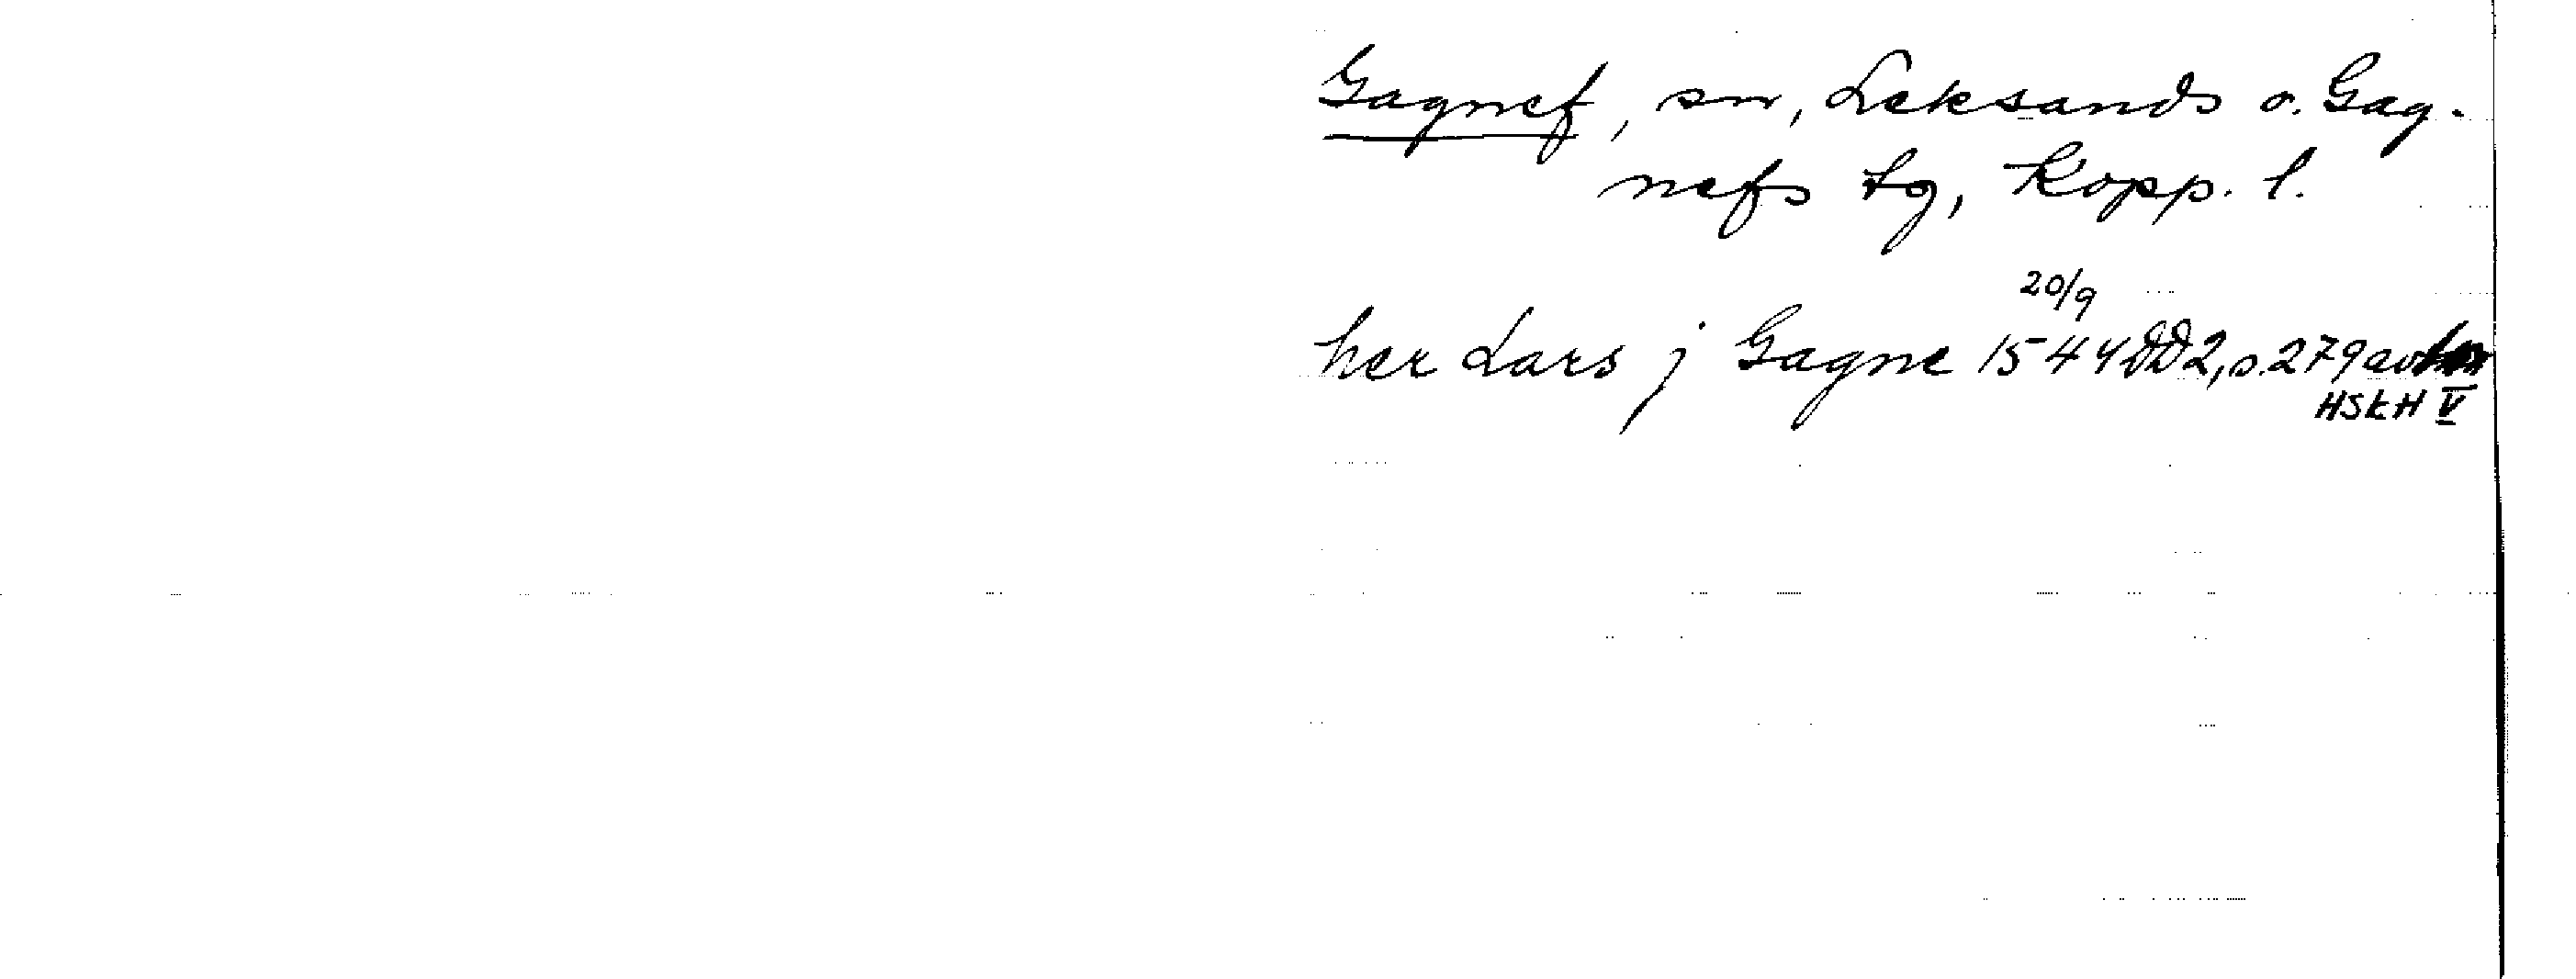 Gagnef, sn, Leksands o. Gag-
nefs tg, Kopp. l.
20/9
her Lars j Gagne 1544 DD2, s. 279 av
HSkH V